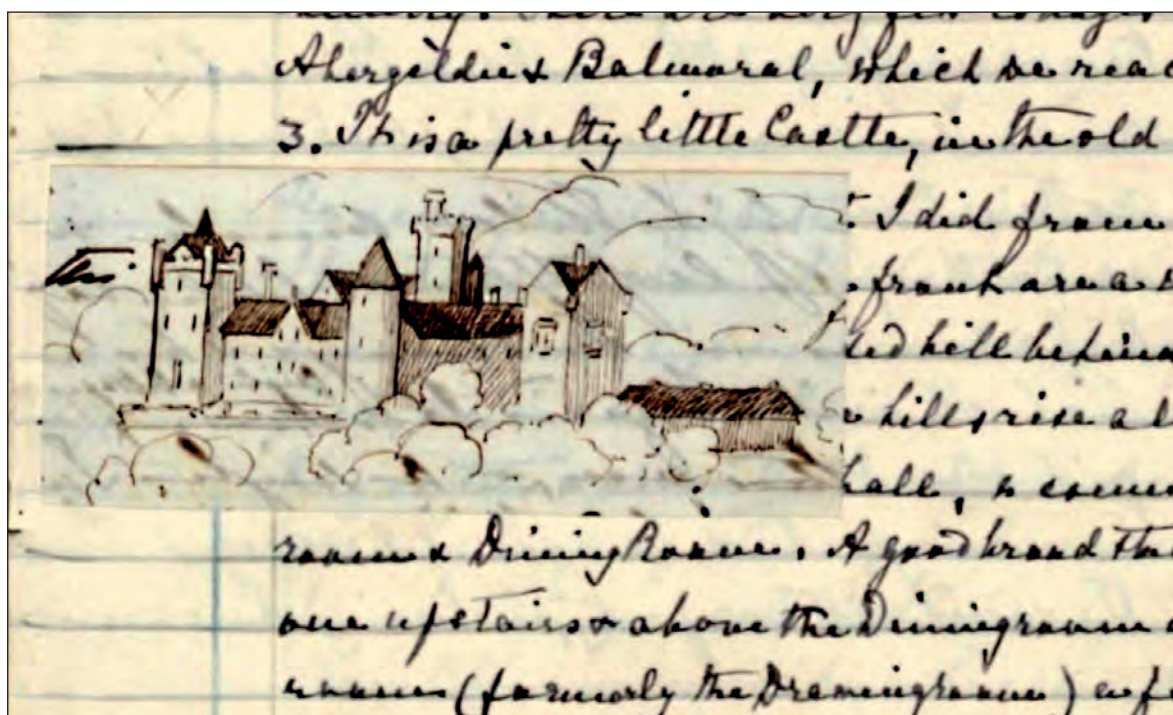 there are very few cottages
Abergeldie & Balmoral, which we reac
3. It is a pretty little Castle, in the old
I did from
front are a
ed hill behin
hills rise a
hall, &
room & Dining Room. A good broad sta
one upstairs & above the Diningroom
room (formerly the Drawingroom) a f